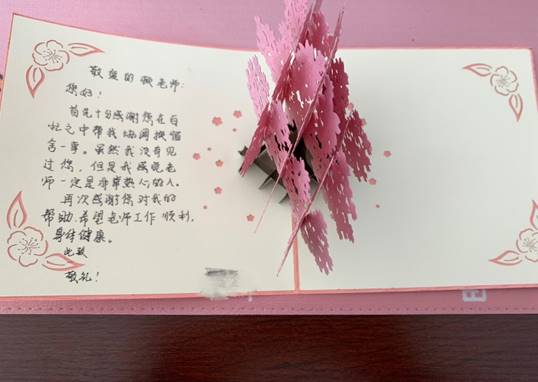 敬爱的顾老师:
您好!
首先十分感谢您在百
忙之中帮我协调换宿
舍一事。虽然我没有见
过您,但是我感觉老
师一定是非常热心的人。
再次感谢您对我的
帮助,希望老师工作顺利,
身体健康。
此致
敬礼!